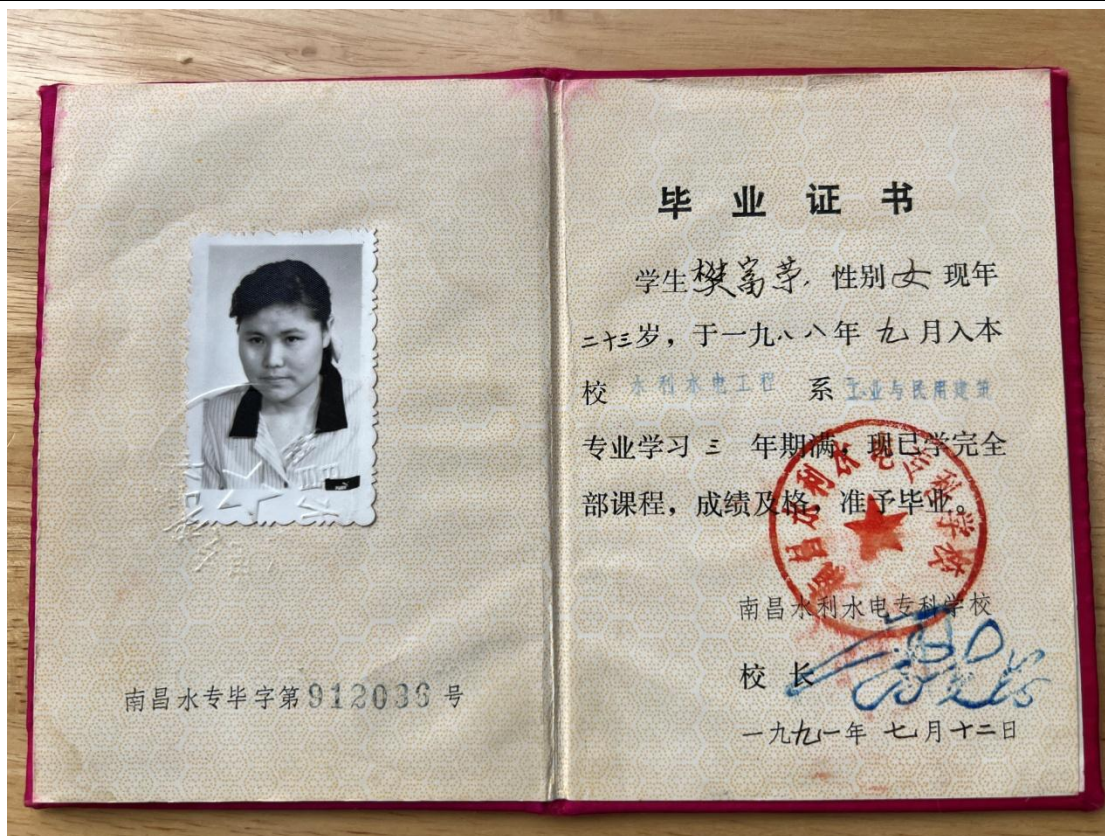 南昌水专毕字第912036号
毕业证书
学生樊富荣,性别女现年
二十三岁,于一九八八年九月入本
校水利水电工程系工业与民用建筑
专业学习三年期满,现已学完全
部课程,成绩及格,准予毕业。
南昌水利水电专科学校
南昌水利水电专科学校
校长
一九九一年七月十二日